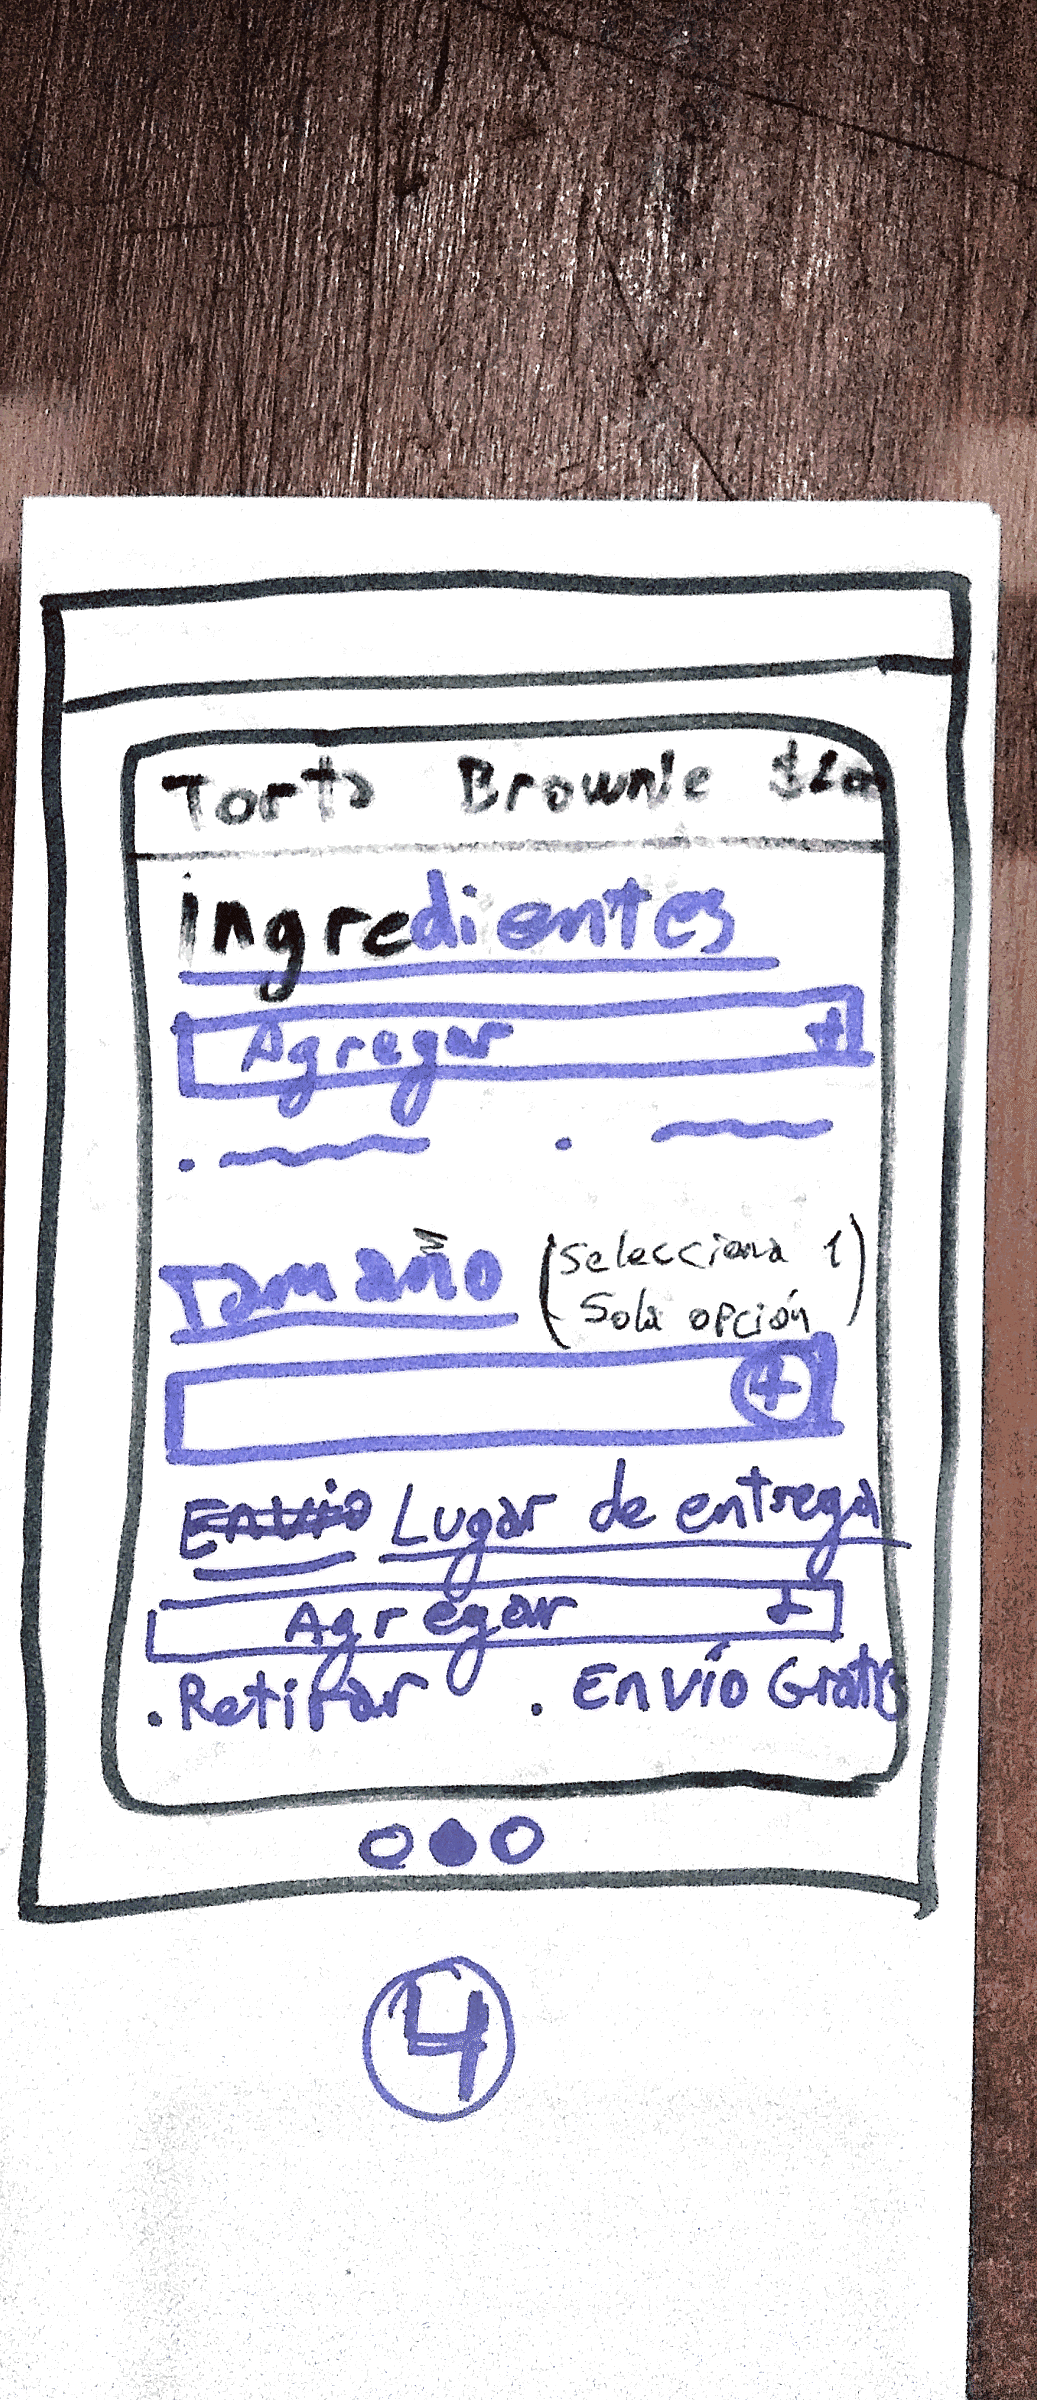 Torta Brownie
ingredientes
Agregar +
Tamaño (Selecciona 1
Sola opción)
+
Envio Lugar de entrega
Agregar +
. Retirar . Envío Gratis
4